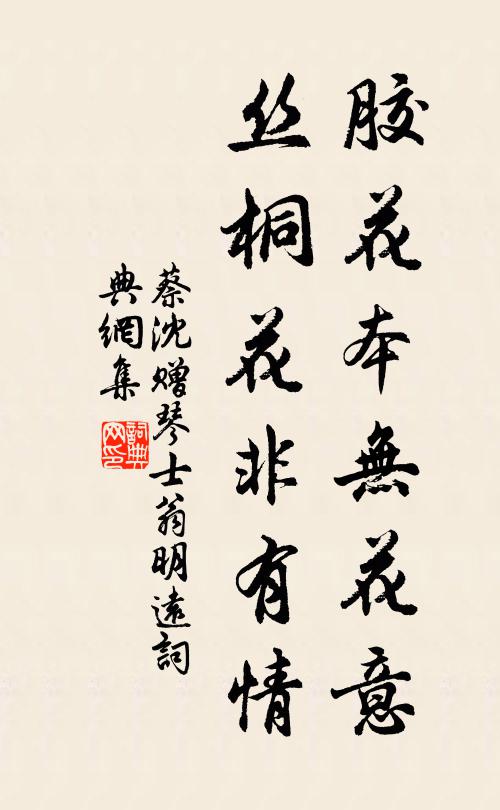 胶花本無花意
丝桐花非有情
蔡沈赠琴士翁明遠詞
典網集
詞典网印